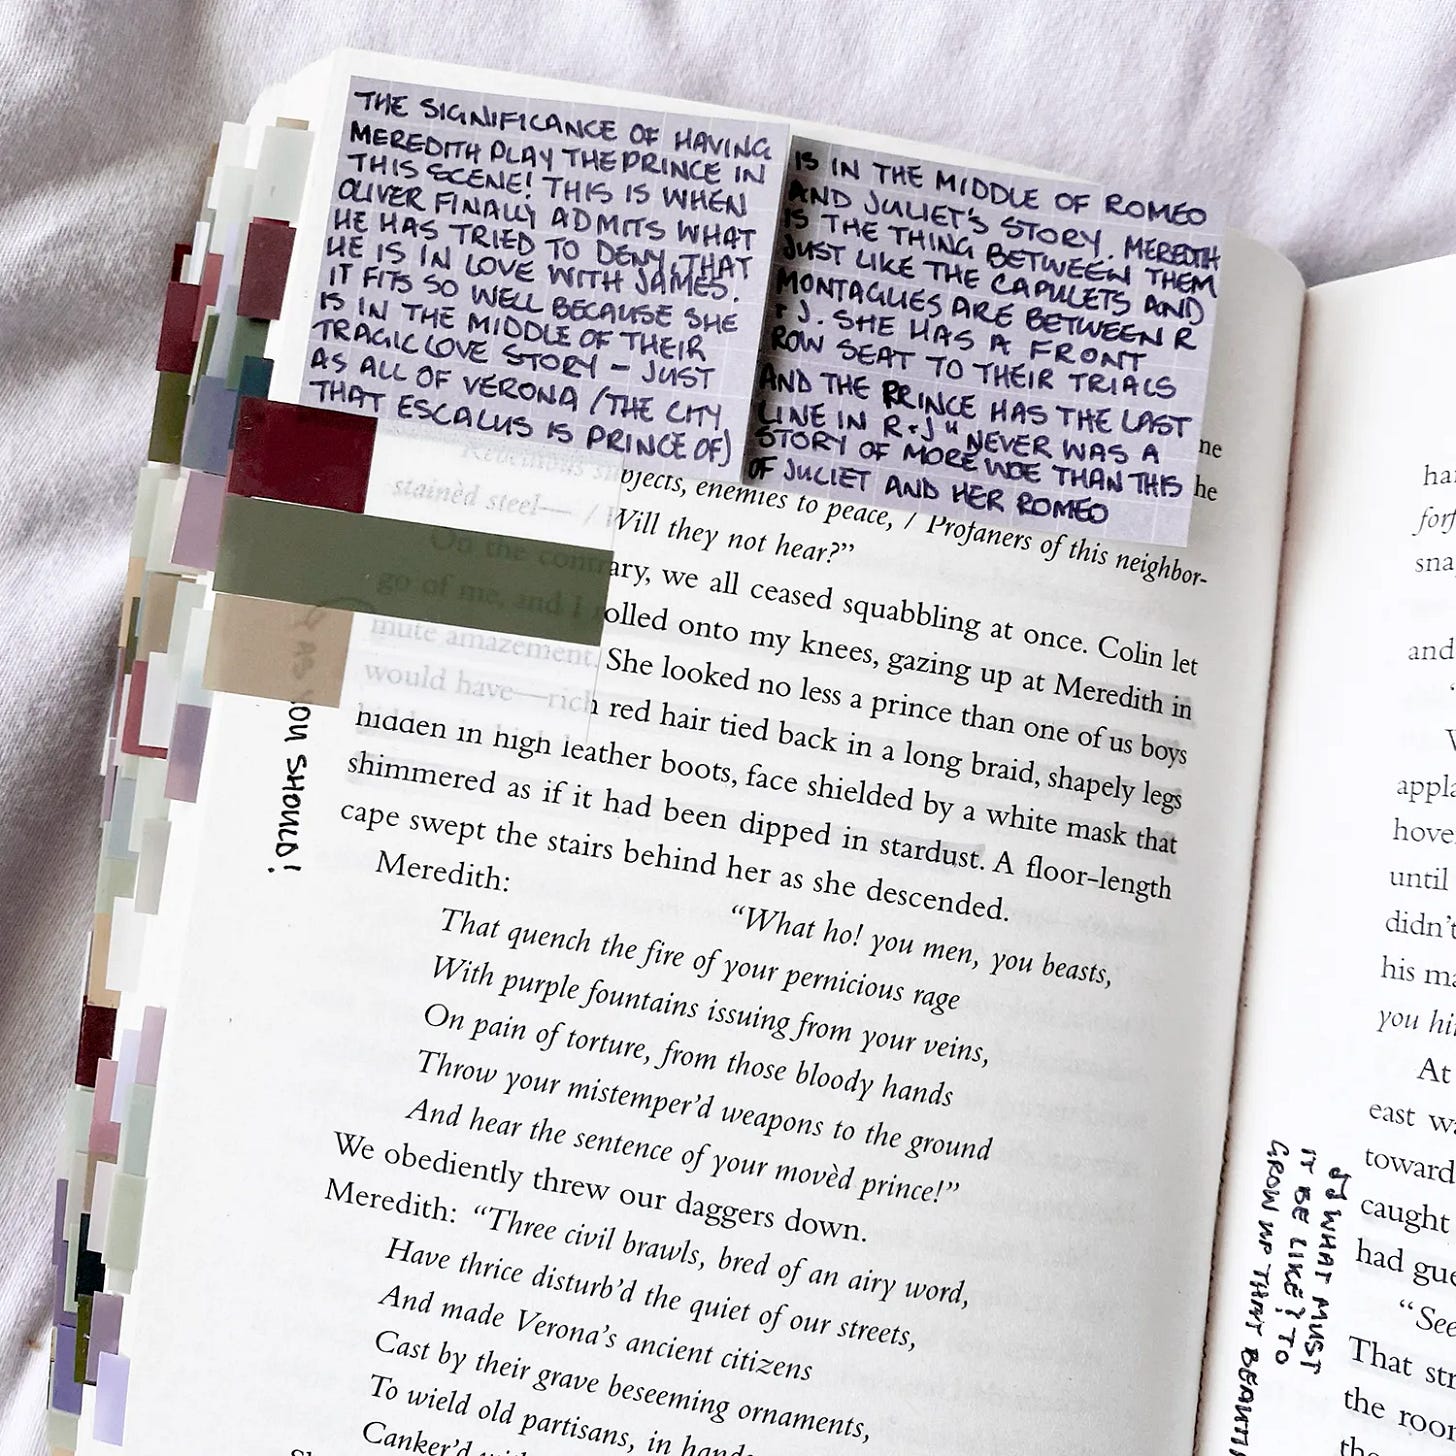 THE SIGNIFICANCE OF HAVING
MEREDITH PLAY THE PRINCE IN
THIS SCENE! THIS IS WHEN
OLIVER FINALLY ADMITS WHAT
HE HAS TRIED TO DENY, THAT
HE IS IN LOVE WITH JAMES.
IT FITS SO WELL BECAUSE SHE
IS IN THE MIDDLE OF THEIR
TRAGIC LOVE STORY - JUST
AS ALL OF VERONA (THE CITY
THAT ESCALUS IS PRINCE OF)
IS IN THE MIDDLE OF ROMEO
AND JULIET'S STORY. MEREDITH
IS THE THING BETWEEN THEM
JUST LIKE THE CAPULETS AND
MONTAGUES ARE BETWEEN R
+ J. SHE HAS A FRONT
ROW SEAT TO THEIR TRIALS
AND THE PRINCE HAS THE LAST
LINE IN R+J "NEVER WAS A
STORY OF MORE WOE THAN THIS
OF JULIET AND HER ROMEO
ne
he
Rebellious su bjects, enemies to peace, / Profaners of this neighbor-
stainèd steel— / Will they not hear?"
On the contrary, we all ceased squabbling at once. Colin let
go of me, and I rolled onto my knees, gazing up at Meredith in
mute amazement. She looked no less a prince than one of us boys
would have—rich red hair tied back in a long braid, shapely legs
hidden in high leather boots, face shielded by a white mask that
shimmered as if it had been dipped in stardust. A floor-length
cape swept the stairs behind her as she descended.
Meredith:
"What ho! you men, you beasts,
That quench the fire of your pernicious rage
With purple fountains issuing from your veins,
On pain of torture, from those bloody hands
Throw your mistemper'd weapons to the ground
And hear the sentence of your movèd prince!"
We obediently threw our daggers down.
Meredith: "Three civil brawls, bred of an airy word,
Have thrice disturb'd the quiet of our streets,
And made Verona's ancient citizens
Cast by their grave beseeming ornaments,
To wield old partisans, in hands
Canker'd
AS YOU SHOULD!
ha
forf
sna
and
appla
hove
until
didn't
his ma
you hi
At
east wa
toward
caught
had gue
"See
That str
the roor
WHAT MUST
IT BE LIKE? TO
GROW UP THAT BEAUTI